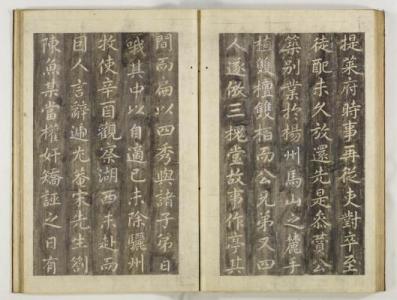 提禁府時事再從吏對卒至
徒配未久放還先是叅贊公
築別業於楊州馬山之麓手
植雙檀雙栢而公兄弟又四
人遂倣三槐堂故事作亭其
間而扁以四秀與諸子弟日
哦其中以自適己未除驪州
牧使辛酉觀察湖西未赴而
因人言辭遞尤菴宋先生劄
陳魚某當權奸矯誣之日有